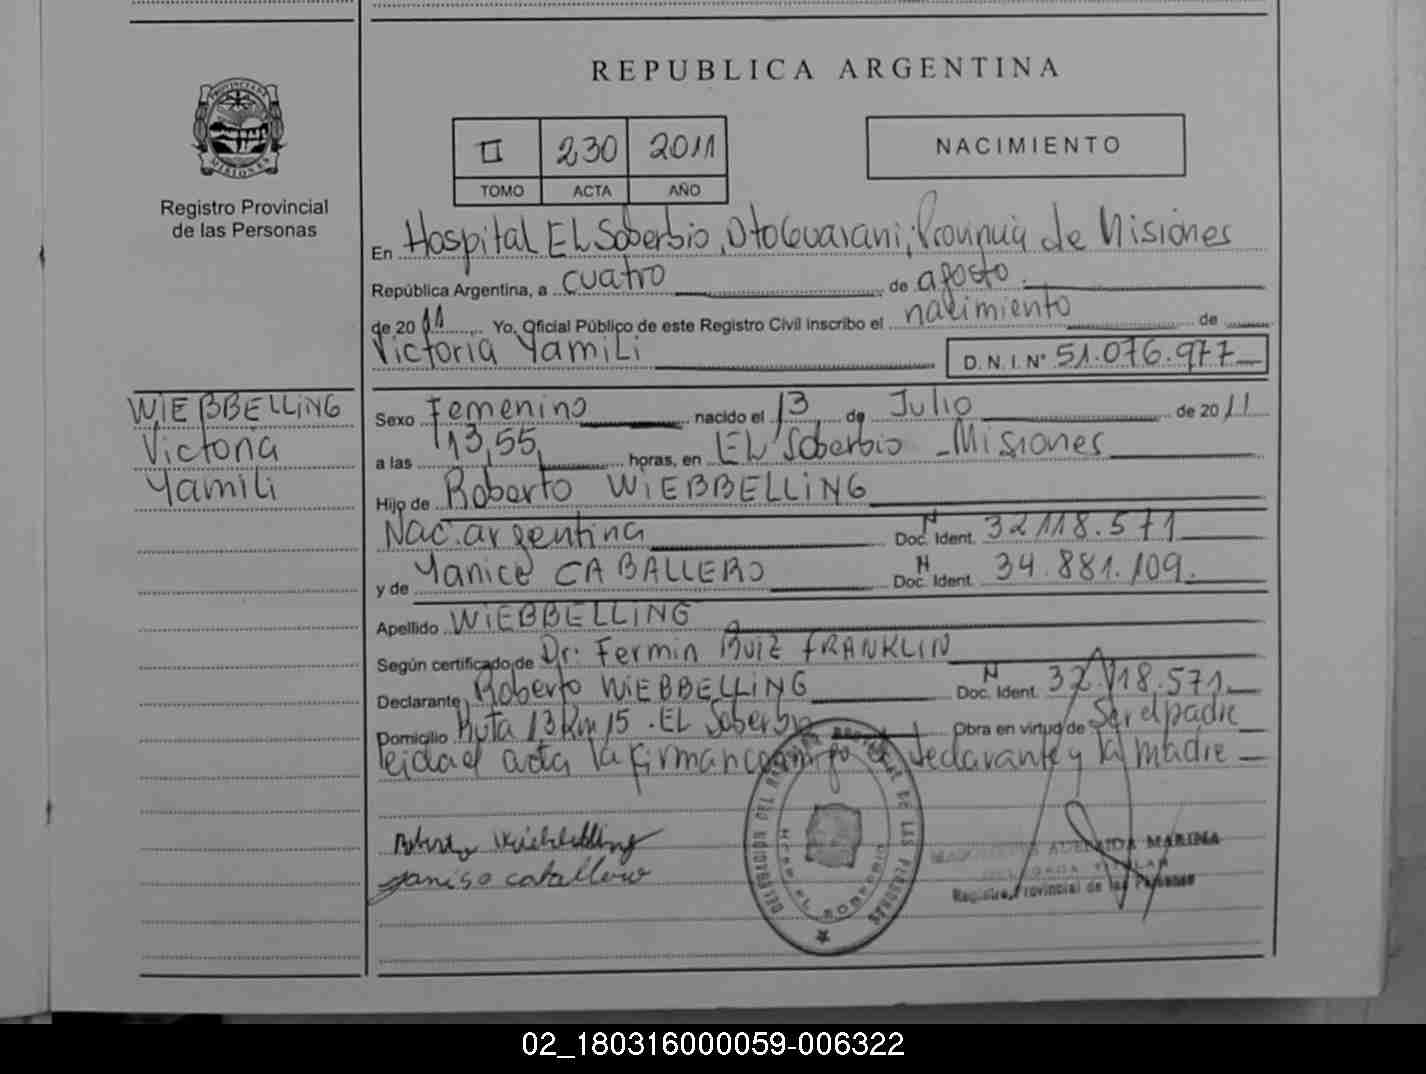 REPUBLICA ARGENTINA
PROVINCIA DE
MISIONES
Registro Provincial
de las Personas
II 230 2011
TOMO ACTA AÑO
NACIMIENTO
En Hospital EL Soberbio, Dto Guarani; Provincia de Misiones
República Argentina, a cuatro de agosto
de 2011 Yo, Oficial Público de este Registro Civil inscribo el nacimiento de
Victoria Yamili D.N.I.Nº 51.076.977
WIEBBELLING
Victoria
Yamili
Sexo Femenino nacido el 13 de Julio de 2011
a las 13,55 horas, en EL Soberbio - Misiones
Hijo de Roberto WIEBBELLING
Nac. argentina Doc. Ident. N 32118.571
y de Yanice CABALLERO Doc. Ident. N 34.881.109.
Apellido WIEBBELLING
Según certificado de Dr: Fermin RUIZ FRANKLIN
Declarante Roberto WIEBBELLING Doc. Ident. N 32.118.571
Domicilio Ruta 13 Km 15 . EL Soberbio Obra en virtud de Ser el padre
leida el acta la firman conmigo el declarante y la madre
caballero
DELEGACION DEL REGISTRO PROVINCIAL DE LAS PERSONAS
EL SOBERBIO
ADELAIDA MARINA
Registro Provincial de las Personas
02_180316000059-006322